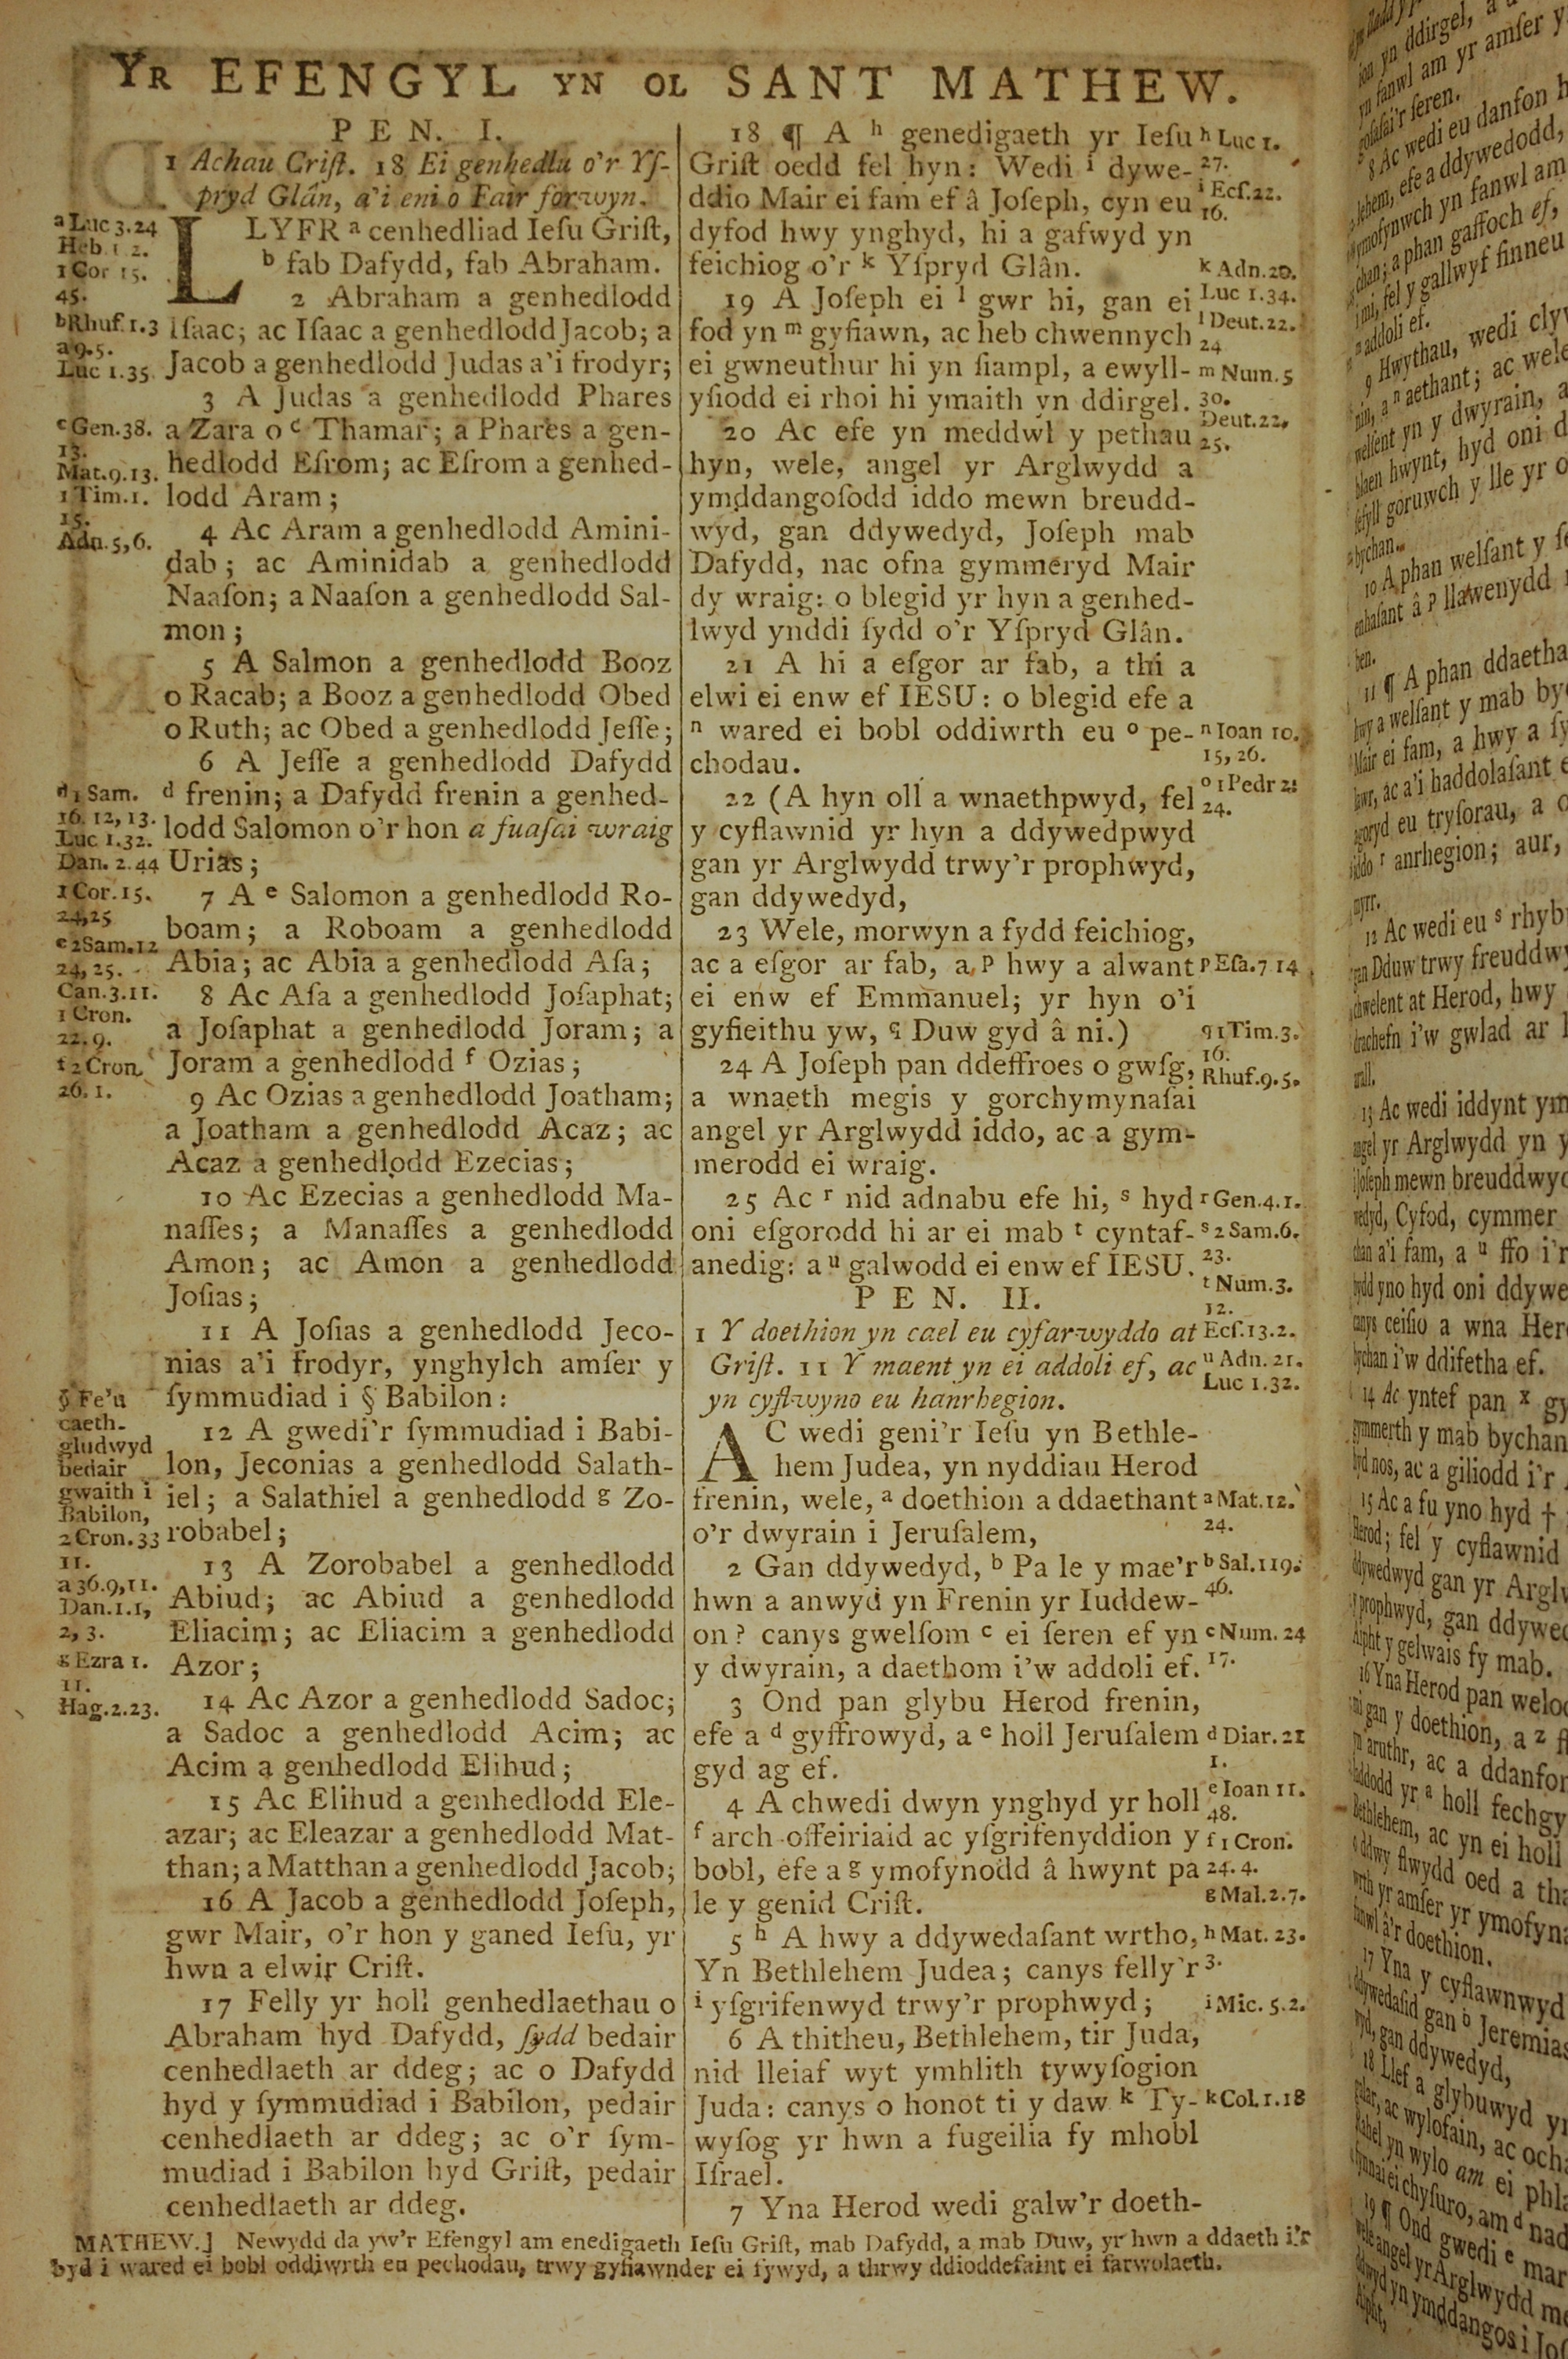 YR EFENGYL YN OL SANT MATHEW.
PEN. I.
1 Achau Criſt. 18 Ei genhedlu o'r Yſ-
pryd Glân, a'i eni o Fair forwyn.
LLYFR ᵃ cenhedliad Ieſu Griſt,
ᵇ fab Dafydd, fab Abraham.
2 Abraham a genhedlodd
Iſaac; ac Iſaac a genhedlodd Jacob; a
Jacob a genhedlodd Judas a'i frodyr;
3 A Judas a genhedlodd Phares
a Zara o ᶜ Thamar; a Phares a gen-
hedlodd Eſrom; ac Eſrom a genhed-
lodd Aram;
4 Ac Aram a genhedlodd Amini-
dab; ac Aminidab a genhedlodd
Naaſon; a Naaſon a genhedlodd Sal-
mon;
5 A Salmon a genhedlodd Booz
o Racab; a Booz a genhedlodd Obed
o Ruth; ac Obed a genhedlodd Jeſſe;
6 A Jeſſe a genhedlodd Dafydd
ᵈ frenin; a Dafydd frenin a genhed-
lodd Salomon o'r hon a fuaſai wraig
Urias;
7 A ᵉ Salomon a genhedlodd Ro-
boam; a Roboam a genhedlodd
Abia; ac Abia a genhedlodd Aſa;
8 Ac Aſa a genhedlodd Joſaphat;
a Joſaphat a genhedlodd Joram; a
Joram a genhedlodd ᶠ Ozias;
9 Ac Ozias a genhedlodd Joatham;
a Joatham a genhedlodd Acaz; ac
Acaz a genhedlodd Ezecias;
10 Ac Ezecias a genhedlodd Ma-
naſſes; a Manaſſes a genhedlodd
Amon; ac Amon a genhedlodd
Joſias;
11 A Joſias a genhedlodd Jeco-
nias a'i frodyr, ynghylch amſer y
ſymmudiad i § Babilon:
12 A gwedi'r ſymmudiad i Babi-
lon, Jeconias a genhedlodd Salath-
iel; a Salathiel a genhedlodd ᵍ Zo-
robabel;
13 A Zorobabel a genhedlodd
Abiud; ac Abiud a genhedlodd
Eliacim; ac Eliacim a genhedlodd
Azor;
14 Ac Azor a genhedlodd Sadoc;
a Sadoc a genhedlodd Acim; ac
Acim a genhedlodd Elihud;
15 Ac Elihud a genhedlodd Ele-
azar; ac Eleazar a genhedlodd Mat-
than; a Matthan a genhedlodd Jacob;
16 A Jacob a genhedlodd Joſeph,
gwr Mair, o'r hon y ganed Ieſu, yr
hwn a elwir Criſt.
17 Felly yr holl genhedlaethau o
Abraham hyd Dafydd, ſydd bedair
cenhedlaeth ar ddeg; ac o Dafydd
hyd y ſymmudiad i Babilon, pedair
cenhedlaeth ar ddeg; ac o'r ſym-
mudiad i Babilon hyd Griſt, pedair
cenhedlaeth ar ddeg.
ᵃ Luc 3.24
Heb. 1 2.
1 Cor 15.
45.
ᵇ Rhuf. 1.3
a 9.5.
Luc 1.35
ᶜ Gen. 38.
13.
Mat. 9.13.
1 Tim. 1.
15.
Adn. 5,6.
ᵈ 1 Sam.
16. 12, 13.
Luc 1.32.
Dan. 2.44
1 Cor. 15.
24,25
ᵉ 2 Sam. 12
24, 25.
Can. 3.11.
1 Cron.
22. 9.
ᶠ 2 Cron.
26. 1.
§ Fe'u
caeth-
gludwyd
bedair
gwaith i
Babilon,
2 Cron. 33
11.
a 36.9,11.
Dan. 1.1,
2, 3.
ᵍ Ezra 1.
11.
Hag. 2.23.
18 ¶ A ʰ genedigaeth yr Ieſu
Griſt oedd fel hyn: Wedi ⁱ dywe-
ddio Mair ei fam ef â Joſeph, cyn eu
dyfod hwy ynghyd, hi a gafwyd yn
feichiog o'r ᵏ Yſpryd Glân.
19 A Joſeph ei ˡ gwr hi, gan ei
fod yn ᵐ gyfiawn, ac heb chwennych
ei gwneuthur hi yn ſiampl, a ewyll-
yſiodd ei rhoi hi ymaith yn ddirgel.
20 Ac efe yn meddwl y pethau
hyn, wele, angel yr Arglwydd a
ymddangoſodd iddo mewn breudd-
wyd, gan ddywedyd, Joſeph mab
Dafydd, nac ofna gymmeryd Mair
dy wraig: o blegid yr hyn a genhed-
lwyd ynddi ſydd o'r Yſpryd Glân.
21 A hi a eſgor ar fab, a thi a
elwi ei enw ef IESU: o blegid efe a
ⁿ wared ei bobl oddiwrth eu ᵒ pe-
chodau.
22 (A hyn oll a wnaethpwyd, fel
y cyflawnid yr hyn a ddywedpwyd
gan yr Arglwydd trwy'r prophwyd,
gan ddywedyd,
23 Wele, morwyn a fydd feichiog,
ac a eſgor ar fab, a ᵖ hwy a alwant
ei enw ef Emmanuel; yr hyn o'i
gyfieithu yw, ᑫ Duw gyd â ni.)
24 A Joſeph pan ddeffroes o gwſg,
a wnaeth megis y gorchymynaſai
angel yr Arglwydd iddo, ac a gym-
merodd ei wraig.
25 Ac ʳ nid adnabu efe hi, ˢ hyd
oni eſgorodd hi ar ei mab ᵗ cyntaf-
anedig: a ᵘ galwodd ei enw ef IESU.
PEN. II.
1 Y doethion yn cael eu cyfarwyddo at
Griſt. 11 Y maent yn ei addoli ef, ac
yn cyflwyno eu hanrhegion.
AC wedi geni'r Ieſu yn Bethle-
hem Judea, yn nyddiau Herod
frenin, wele, ᵃ doethion a ddaethant
o'r dwyrain i Jeruſalem,
2 Gan ddywedyd, ᵇ Pa le y mae'r
hwn a anwyd yn Frenin yr Iuddew-
on? canys gwelſom ᶜ ei ſeren ef yn
y dwyrain, a daethom i'w addoli ef.
3 Ond pan glybu Herod frenin,
efe a ᵈ gyffrowyd, a ᵉ holl Jeruſalem
gyd ag ef.
4 A chwedi dwyn ynghyd yr holl
ᶠ arch-offeiriaid ac yſgrifenyddion y
bobl, efe a ᵍ ymofynodd â hwynt pa
le y genid Criſt.
5 ʰ A hwy a ddywedaſant wrtho,
Yn Bethlehem Judea; canys felly'r
ⁱ yſgrifenwyd trwy'r prophwyd;
6 A thitheu, Bethlehem, tir Juda,
nid lleiaf wyt ymhlith tywyſogion
Juda: canys o honot ti y daw ᵏ Ty-
wyſog yr hwn a fugeilia fy mhobl
Iſrael.
7 Yna Herod wedi galw'r doeth-
ʰ Luc 1.
27.
ⁱ Ecſ. 22.
16.
ᵏ Adn. 20.
Luc 1.34.
ˡ Deut. 22.
24
ᵐ Num. 5
30.
Deut. 22.
25.
ⁿ Ioan 10.
15, 26.
ᵒ 1 Pedr 2:
24.
ᵖ Eſa. 7 14
ᑫ 1 Tim. 3.
16.
Rhuf. 9.5.
ʳ Gen. 4.1.
ˢ 2 Sam. 6.
23.
ᵗ Num. 3.
12.
Ecſ. 13.2.
ᵘ Adn. 21.
Luc 1.32.
ᵃ Mat. 12.
24.
ᵇ Sal. 119.
46.
ᶜ Num. 24
17.
ᵈ Diar. 21
1.
ᵉ Ioan 11.
48.
ᶠ 1 Cron.
24. 4.
ᵍ Mal. 2.7.
ʰ Mat. 23.
3.
ⁱ Mic. 5.2.
ᵏ Col. 1.18
MATHEW.] Newydd da yw'r Efengyl am enedigaeth Ieſu Griſt, mab Dafydd, a mab Duw, yr hwn a ddaeth i'r
byd i wared ei bobl oddiwrth eu pechodau, trwy gyfiawnder ei fywyd, a thrwy ddioddefaint ei farwolaeth.
yn ddirgel,
yn fanwl am yr amſer y
ſeren.
8 Ac wedi eu danfon
efe a ddywedodd,
ymofynwch yn fanwl am
a phan gaffoch ef,
fel y gallwyf finneu
addoli ef.
9 Hwythau, wedi
a ⁿ aethant; ac wele
yn y dwyrain, a
blaen hwynt, hyd oni
goruwch y lle yr
bychan.
10 A phan welſant y
â ᵖ llawenydd
11 ¶ A phan
a welſant y mab
Mair ei fam, a hwy a
ac a'i haddolaſant
eu tryſorau, a
ʳ anrhegion; aur,
myrr.
12 Ac wedi eu ˢ
Dduw trwy
at Herod, hwy
drachefn i'w gwlad ar
arall.
13 Ac wedi iddynt
angel yr Arglwydd yn
Joſeph mewn
Cyfod, cymmer
a'i fam, a ᵘ ffo i'r
yno hyd oni
canys ceiſio a wna
bychan i'w ddifetha ef.
14 Ac yntef pan ˣ
y mab bychan
nos, ac a giliodd i'r
15 Ac a fu yno hyd †
Herod; fel y cyflawnid
gan yr
prophwyd, gan
y gelwais fy mab.
16 Yna Herod pan
gan y doethion, a ᶻ
aruthr, ac a
yr ᵃ holl
Bethlehem, ac yn ei holl
ddwy flwydd oed a
yr amſer yr
â'r doethion.
17 Yna y cyflawnwyd
gan ᵇ
gan ddywedyd,
18 Llef a glybuwyd
ac wylofain, ac
yn wylo am ei
ei chyſuro, am ᵈ
19 ¶ Ond gwedi ᵉ
angel yr Arglwydd
yn ymddangos i